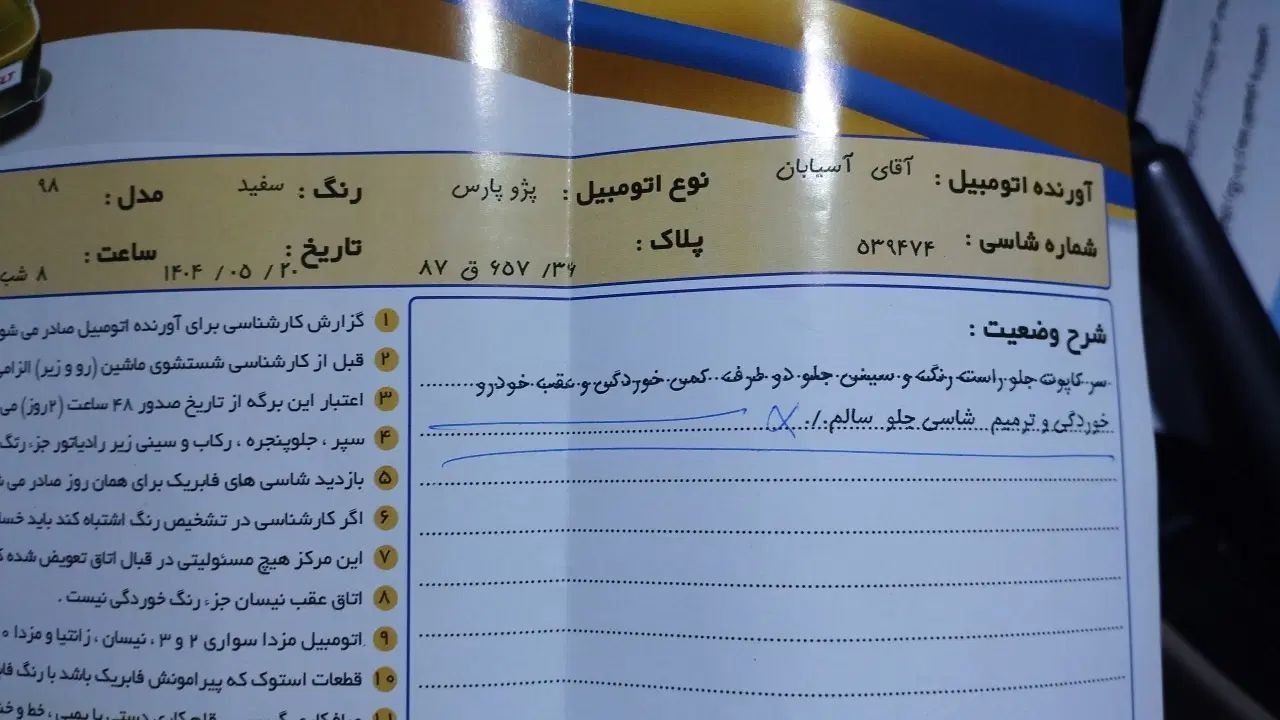 آورنده اتومبیل : آقای آسیابان نوع اتومبیل : پژو پارس رنگ : سفید مدل : ۹۸
شماره شاسی : ۵۳۹۴۷۴ پلاک : ۳۶/ ۶۵۷ ق ۸۷ تاریخ : ۱۴۰۴ / ۰۵ / ۲۰ ساعت : ۸ شب
شرح وضعیت :
سر کاپوت جلو راست رنگ و سینی جلو دو طرف کمی خوردگی و عقب خودرو
خوردگی و ترمیم شاسی جلو سالم./.
۱ گزارش کارشناسی برای آورنده اتومبیل صادر می شو
۲ قبل از کارشناسی شستشوی ماشین (رو و زیر) الزامی
۳ اعتبار این برگه از تاریخ صدور ۴۸ ساعت (۲روز) می
۴ سپر ، جلوپنجره ، رکاب و سینی زیر رادیاتور جزء رنگ
۵ بازدید شاسی های فابریک برای همان روز صادر می
۶ اگر کارشناسی در تشخیص رنگ اشتباه کند باید خسا
۷ این مرکز هیچ مسئولیتی در قبال اتاق تعویض شده
۸ اتاق عقب نیسان جزء رنگ خوردگی نیست .
۹ اتومبیل مزدا سواری ۲ و ۳ ، نیسان ، زانتیا و مزدا
۱۰ قطعات استوک که پیرامونش فابریک باشد با رنگ فاب
۱۱